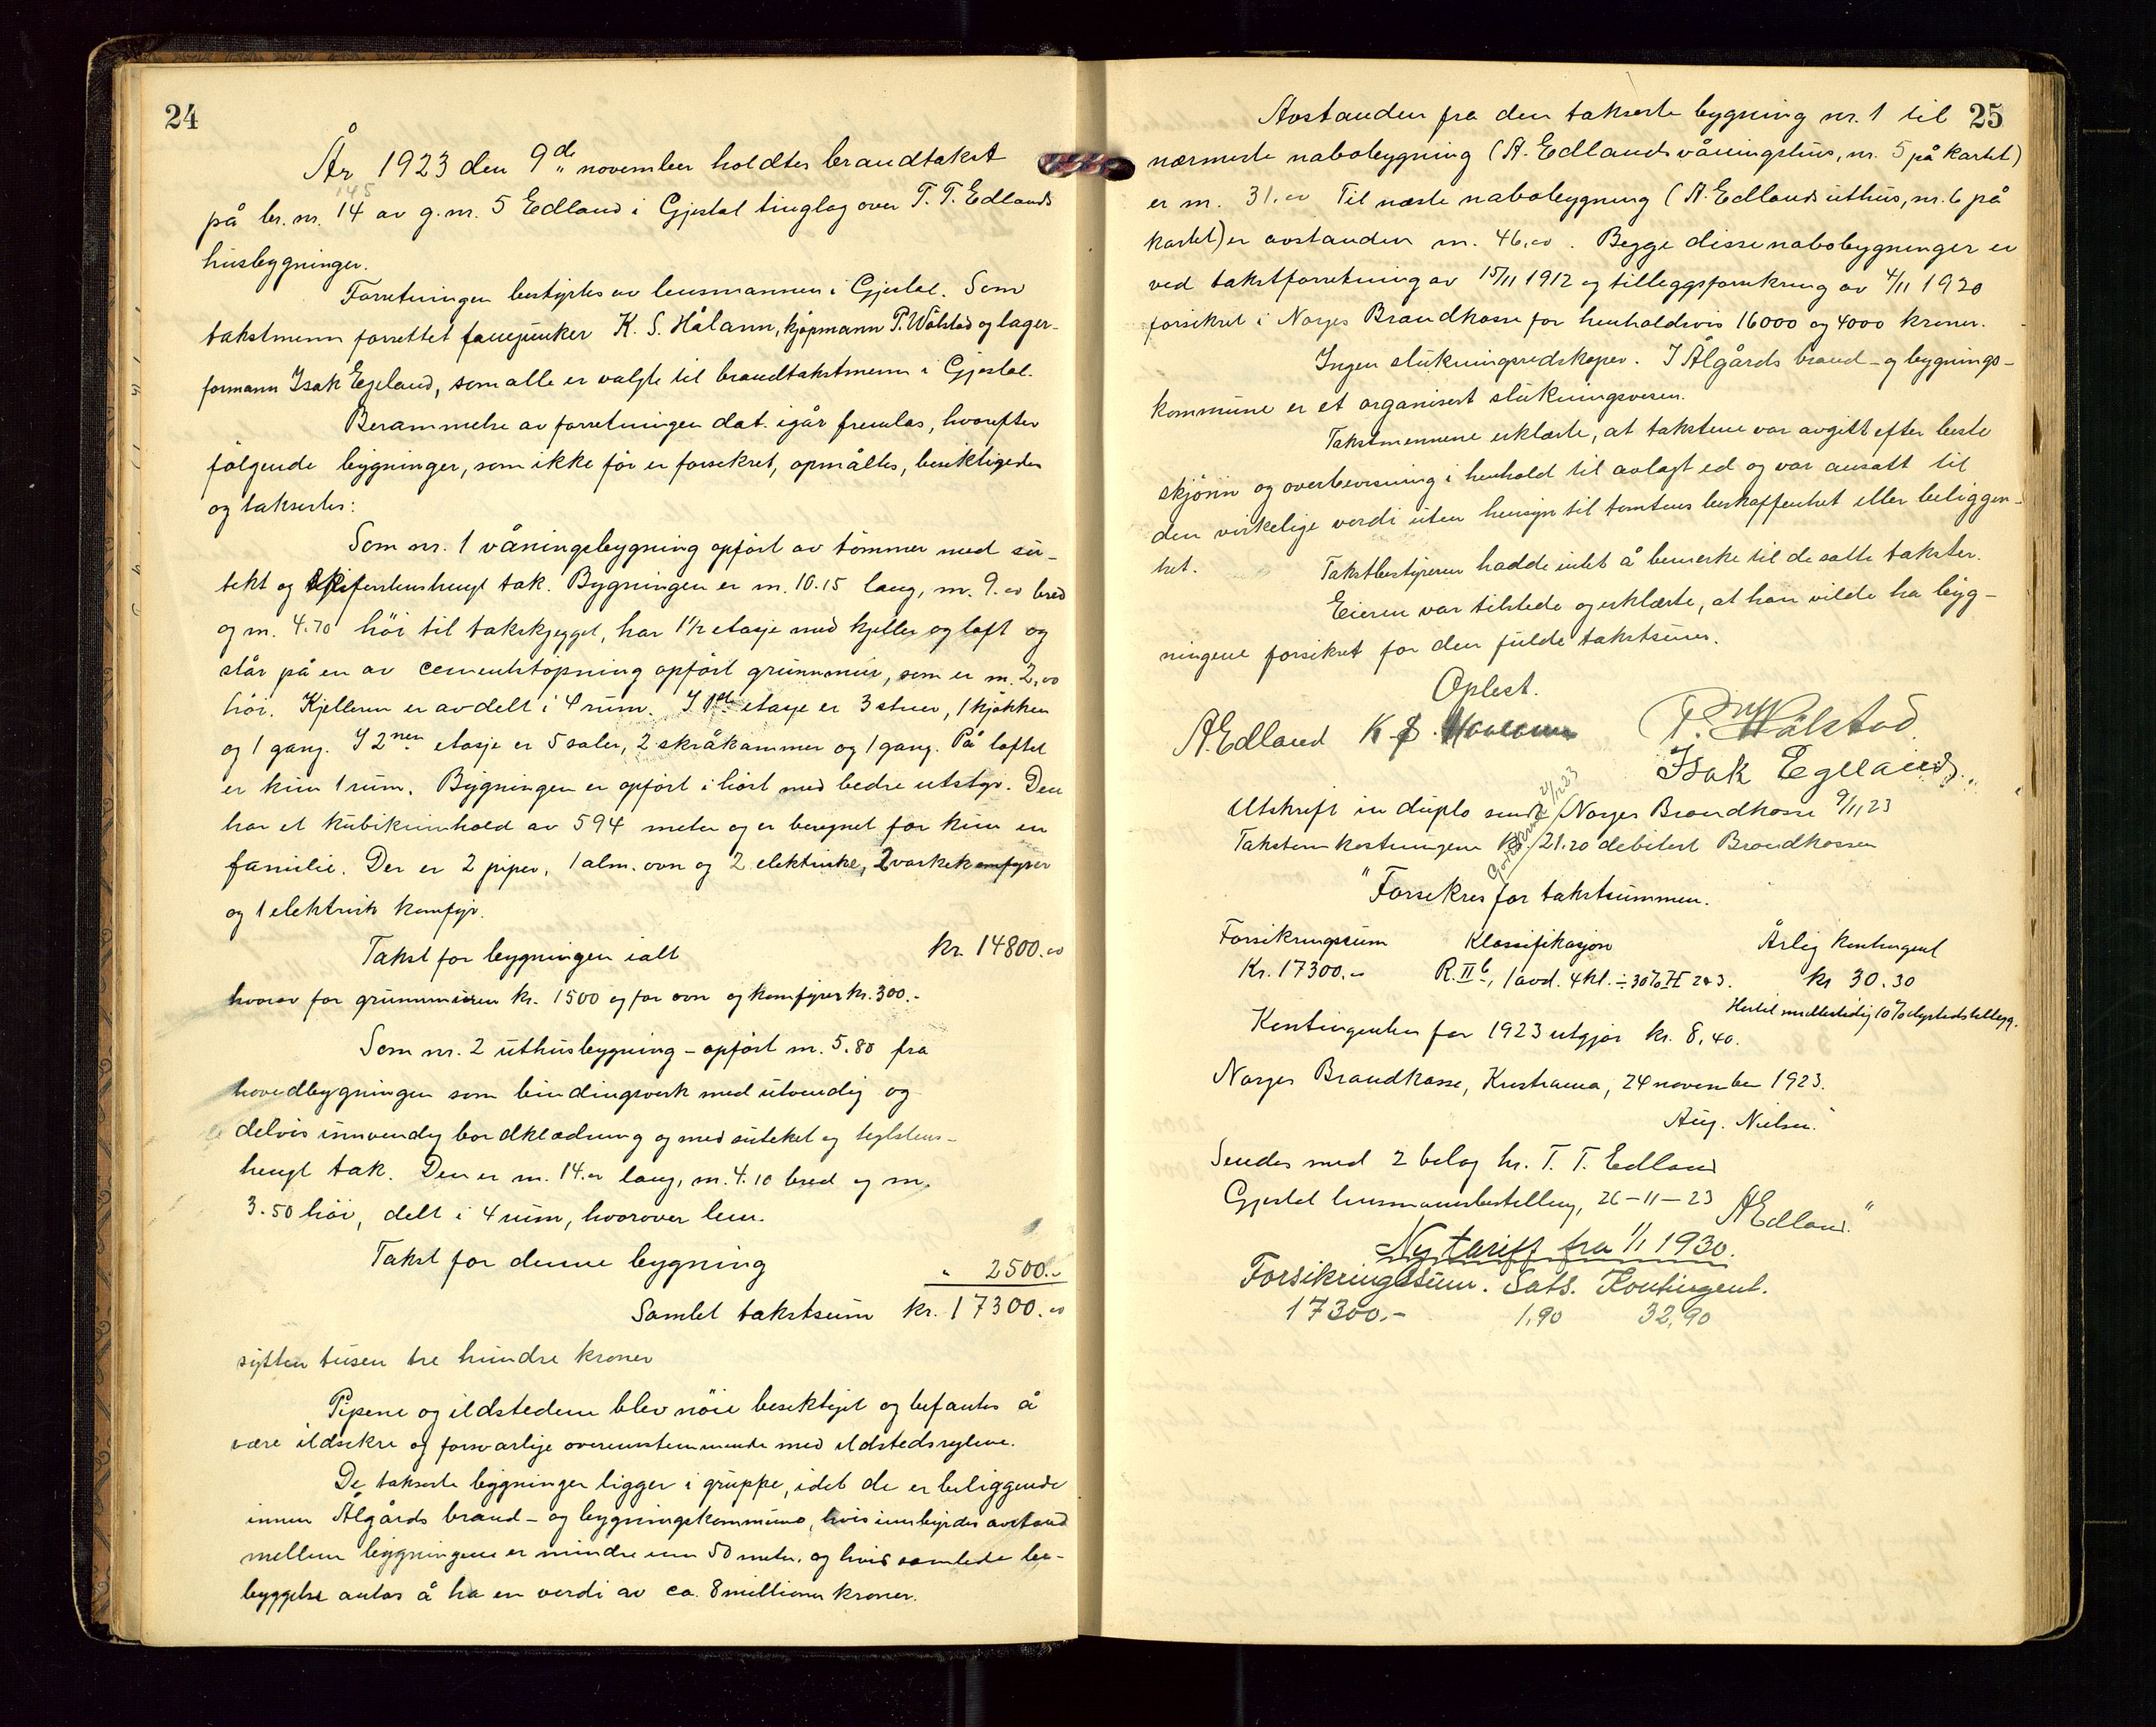 24
År 1923 den 9de november holdtes brandtakst
145
på br. nr. 14 av g. nr. 5 Edland i Gjestal tinglag over T. T. Edlands
husbygninger.
Forretningen bestyrtes av lensmannen i Gjestal. Som
takstmenn forrettet fanejunker K. S. Hålann, kjøpmann P. Wålstad og lager-
formann Isak Egeland, som alle er valgte til brandtakstmenn i Gjestal.
Berammelse av forretningen dat. igår fremlas, hvorefter
følgende bygninger, som ikke før er forsekret, opmåltes, besiktigedes
og taksertes:
Som nr. 1 våningsbygning opført av tømmer med su-
tekt og skiferstenshengt tak. Bygningen er m. 10.15 lang, m. 9.00 bred
og m. 4.70 høi til takskjegget, har 1½ etasje med kjeller og loft og
står på en av cementstøpning opført grunnmur, som er m. 2,00
høi. Kjelleren er avdelt i 4 rum. I 1ste etasje er 3 stuer, 1 kjøkken
og 1 gang. I 2nen etasje er 5 saler, 2 skråkammer og 1 gang. På loftet
er kun 1 rum. Bygningen er opført i høst med bedre utstyr. Den
har et kubikinnhold av 594 meter og er beregnet for kun en
familie. Der er 2 piper, 1 alm. ovn og 2 elektriske, 2 vaskekomfyrer
og 1 elektrisk komfyr.
Takst for bygningen ialt kr. 14800.00
hvorav for grunnmuren kr. 1500 og for ovn og komfyrer kr. 300.-
Som nr. 2 uthusbygning - opført m. 5.80 fra
hovedbygningen som bindingsverk med utvendig og
delvis innvendig bordklædning og med sutekt og teglstens-
hengt tak. Den er m. 14.00 lang, m. 4.10 bred og m.
3.50 høi, delt i 4 rum, hvorover lem.
Takst for denne bygning " 2500.-
Samlet takstsum kr. 17300.00
sytten tusen tre hundre kroner
Pipene og ildstedene blev nøie besiktiget og befantes å
være ildsikre og forsvarlige overensstemmende med ildstedsreglene.
De takserte bygninger ligger i gruppe, idet de er beliggende
innen Ålgårds brand- og bygningskommune, hvis innbyrdes avstand
mellem bygningene er mindre enn 50 meter, og hvis samlede be-
byggelse antas å ha en verdi av ca. 8 millioner kroner.
25
Avstanden fra den takserte bygning nr. 1 til
nærmeste nabobygning (A. Edlands våningshus, nr. 5 på kartet)
er m. 31.00 Til næste nabobygning (A. Edlands uthus, nr. 6 på
kartet) er avstanden m. 46,00. Begge disse nabobygninger er
ved takstforretning av 15/11 1912 og tilleggsforsikring av 4/11 1920
forsikret i Norges Brandkasse for henholdsvis 16000 og 4000 kroner.
Ingen slukningsredskaper. I Ålgårds brand- og bygnings-
kommune er et organisert slukningsvesen.
Takstmennene erklærte, at takstene var avgitt efter beste
skjønn og overbevisning i henhold til avlagt ed og var ansatt til
den virkelige verdi uten hensyn til tomtens beskaffenhet eller beliggen-
het.
Takstbestyreren hadde intet å bemerke til de satte takster.
Eieren var tilstede og erklærte, at han vilde ha byg-
ningene forsikret for den fulde takstsum.
Oplest.
A. Edland K. S. Haaland P. Wålstad.
Isak Egeland.
Utskrift in duplo sendt Norges Brandkasse 9/11 23
Takstomkostningene kr. 21.20 debitert Brandkassen
"Forsekres for takstsummen.
Forsikringssum Klassifikasjon Årlig kontingent
Kr. 17300.00 R. II b, 1 avd. 4 kl. ÷ 30% H 2&3. kr 30.30
Hertil midlertidig 10% dyrtidstillegg.
Kontingenten for 1923 utgjør kr. 8,40.
Norges Brandkasse, Kristiania, 24 november 1923.
Aug. Nielsen.
Sendes med 2 bilag hr. T. T. Edland
Gjestal lensmannsbestilling, 26-11-23 A Edland."
Ny tariff fra 1/1 1930.
Forsikringssum. Sats. Kontingent.
17300.- 1,90 32,90